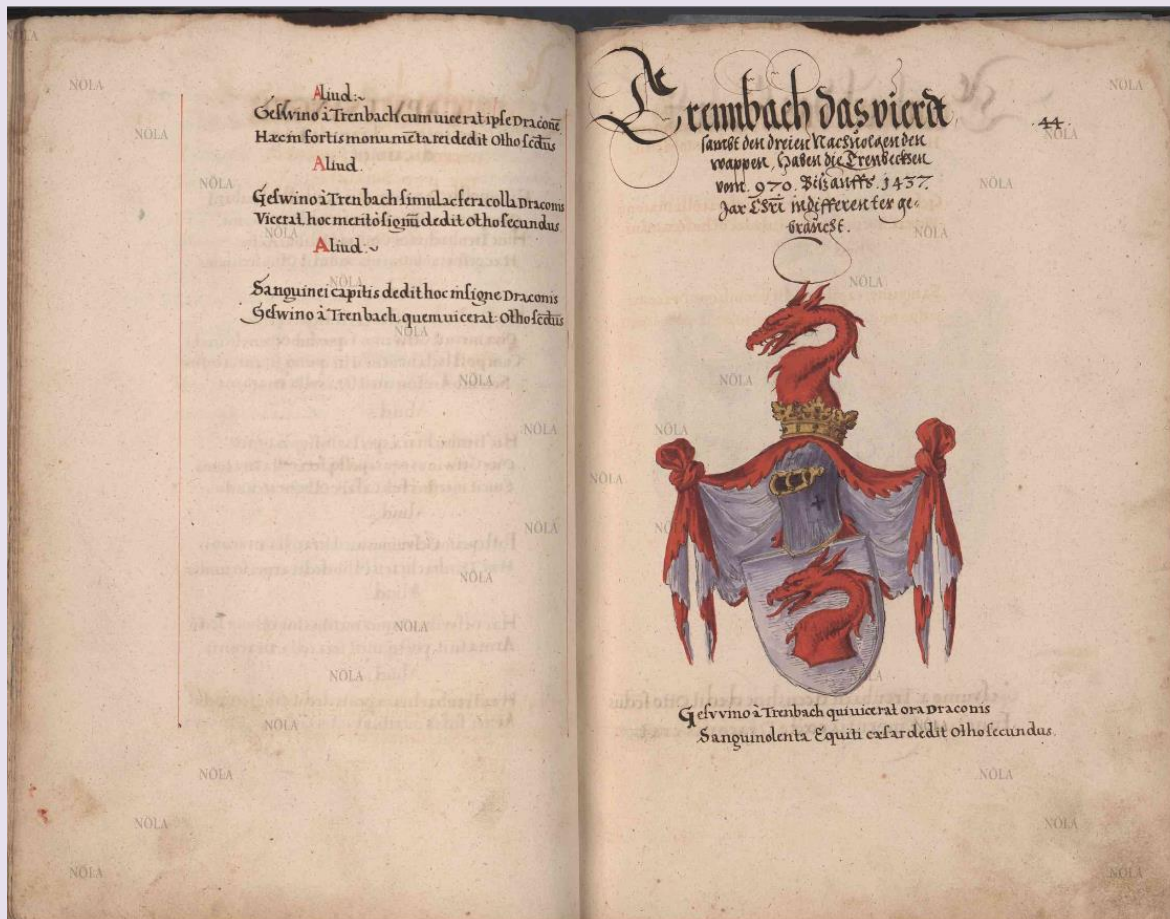 Aliud:~
Geswino à Trenbach cum vicerat ipse Draconē
Hæc in fortis monumēta rei dedit Otho scd̄us
Aliud.
Geswino à Trenbach simulac fera colla Draconis
Vicerat hoc meritò signū dedit Otho secundus
Aliud.~
Sanguinei capitis dedit hoc insigne Draconis
Geswino à Trenbach quem vicerat Otho scd̄us
Trennbach das vierdt
44.
sambt den dreien Nachvolgenden
wappen, haben die Trenbecken
vom. 970. Bis auffs. 1437.
Jar Chri indifferenter ge-
braucht.
Gesvvino à Trenbach qui vicerat ora Draconis
Sanguinolenta Equiti cæsar dedit Otho secundus.
NÖLA